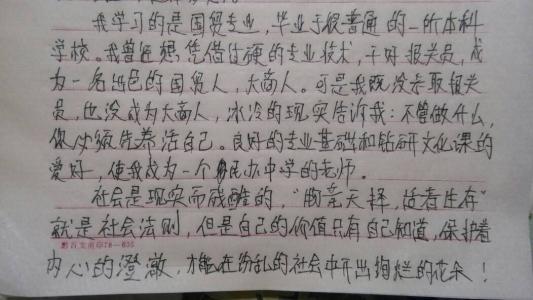 我学习的是国贸专业，毕业于很普通的一所本科
学校。我曾想凭借过硬的专业技术，干好报关员，成
为一名出色的国贸人，大商人。可是我既没考取报关
员，也没成为大商人，冰冷的现实告诉我：不管做什么，
你必须先养活自己。良好的专业基础和钻研文化课的
爱好，使我成为一个民办中学的老师。
社会是现实而残酷的，“物竞天择，适者生存”
就是社会法则，但是自己的价值只有自己知道，保护着
内心的澄澈，才能在纷乱的社会中开出绚烂的花朵！